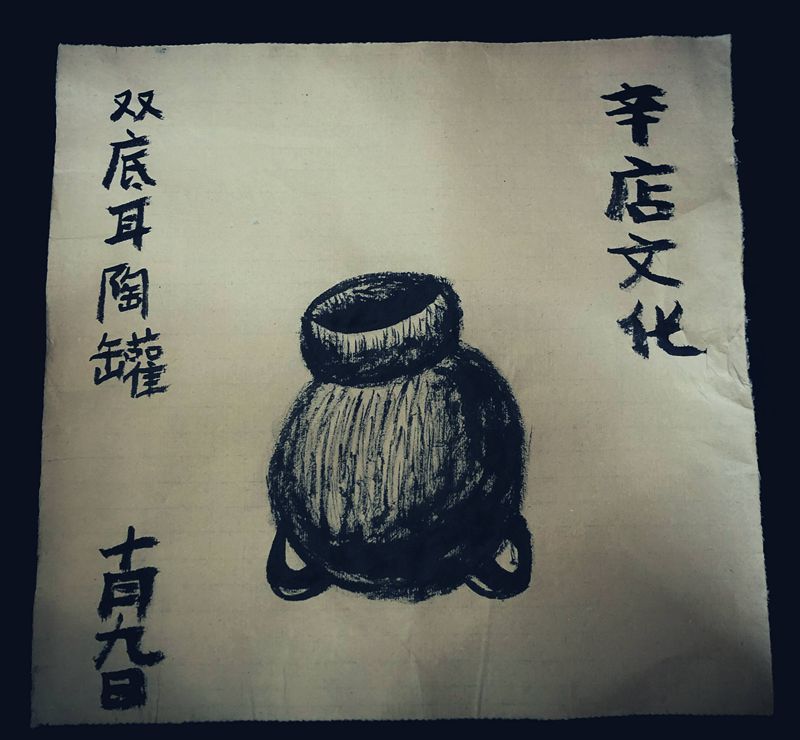 辛店文化
双底耳陶罐
十月九日